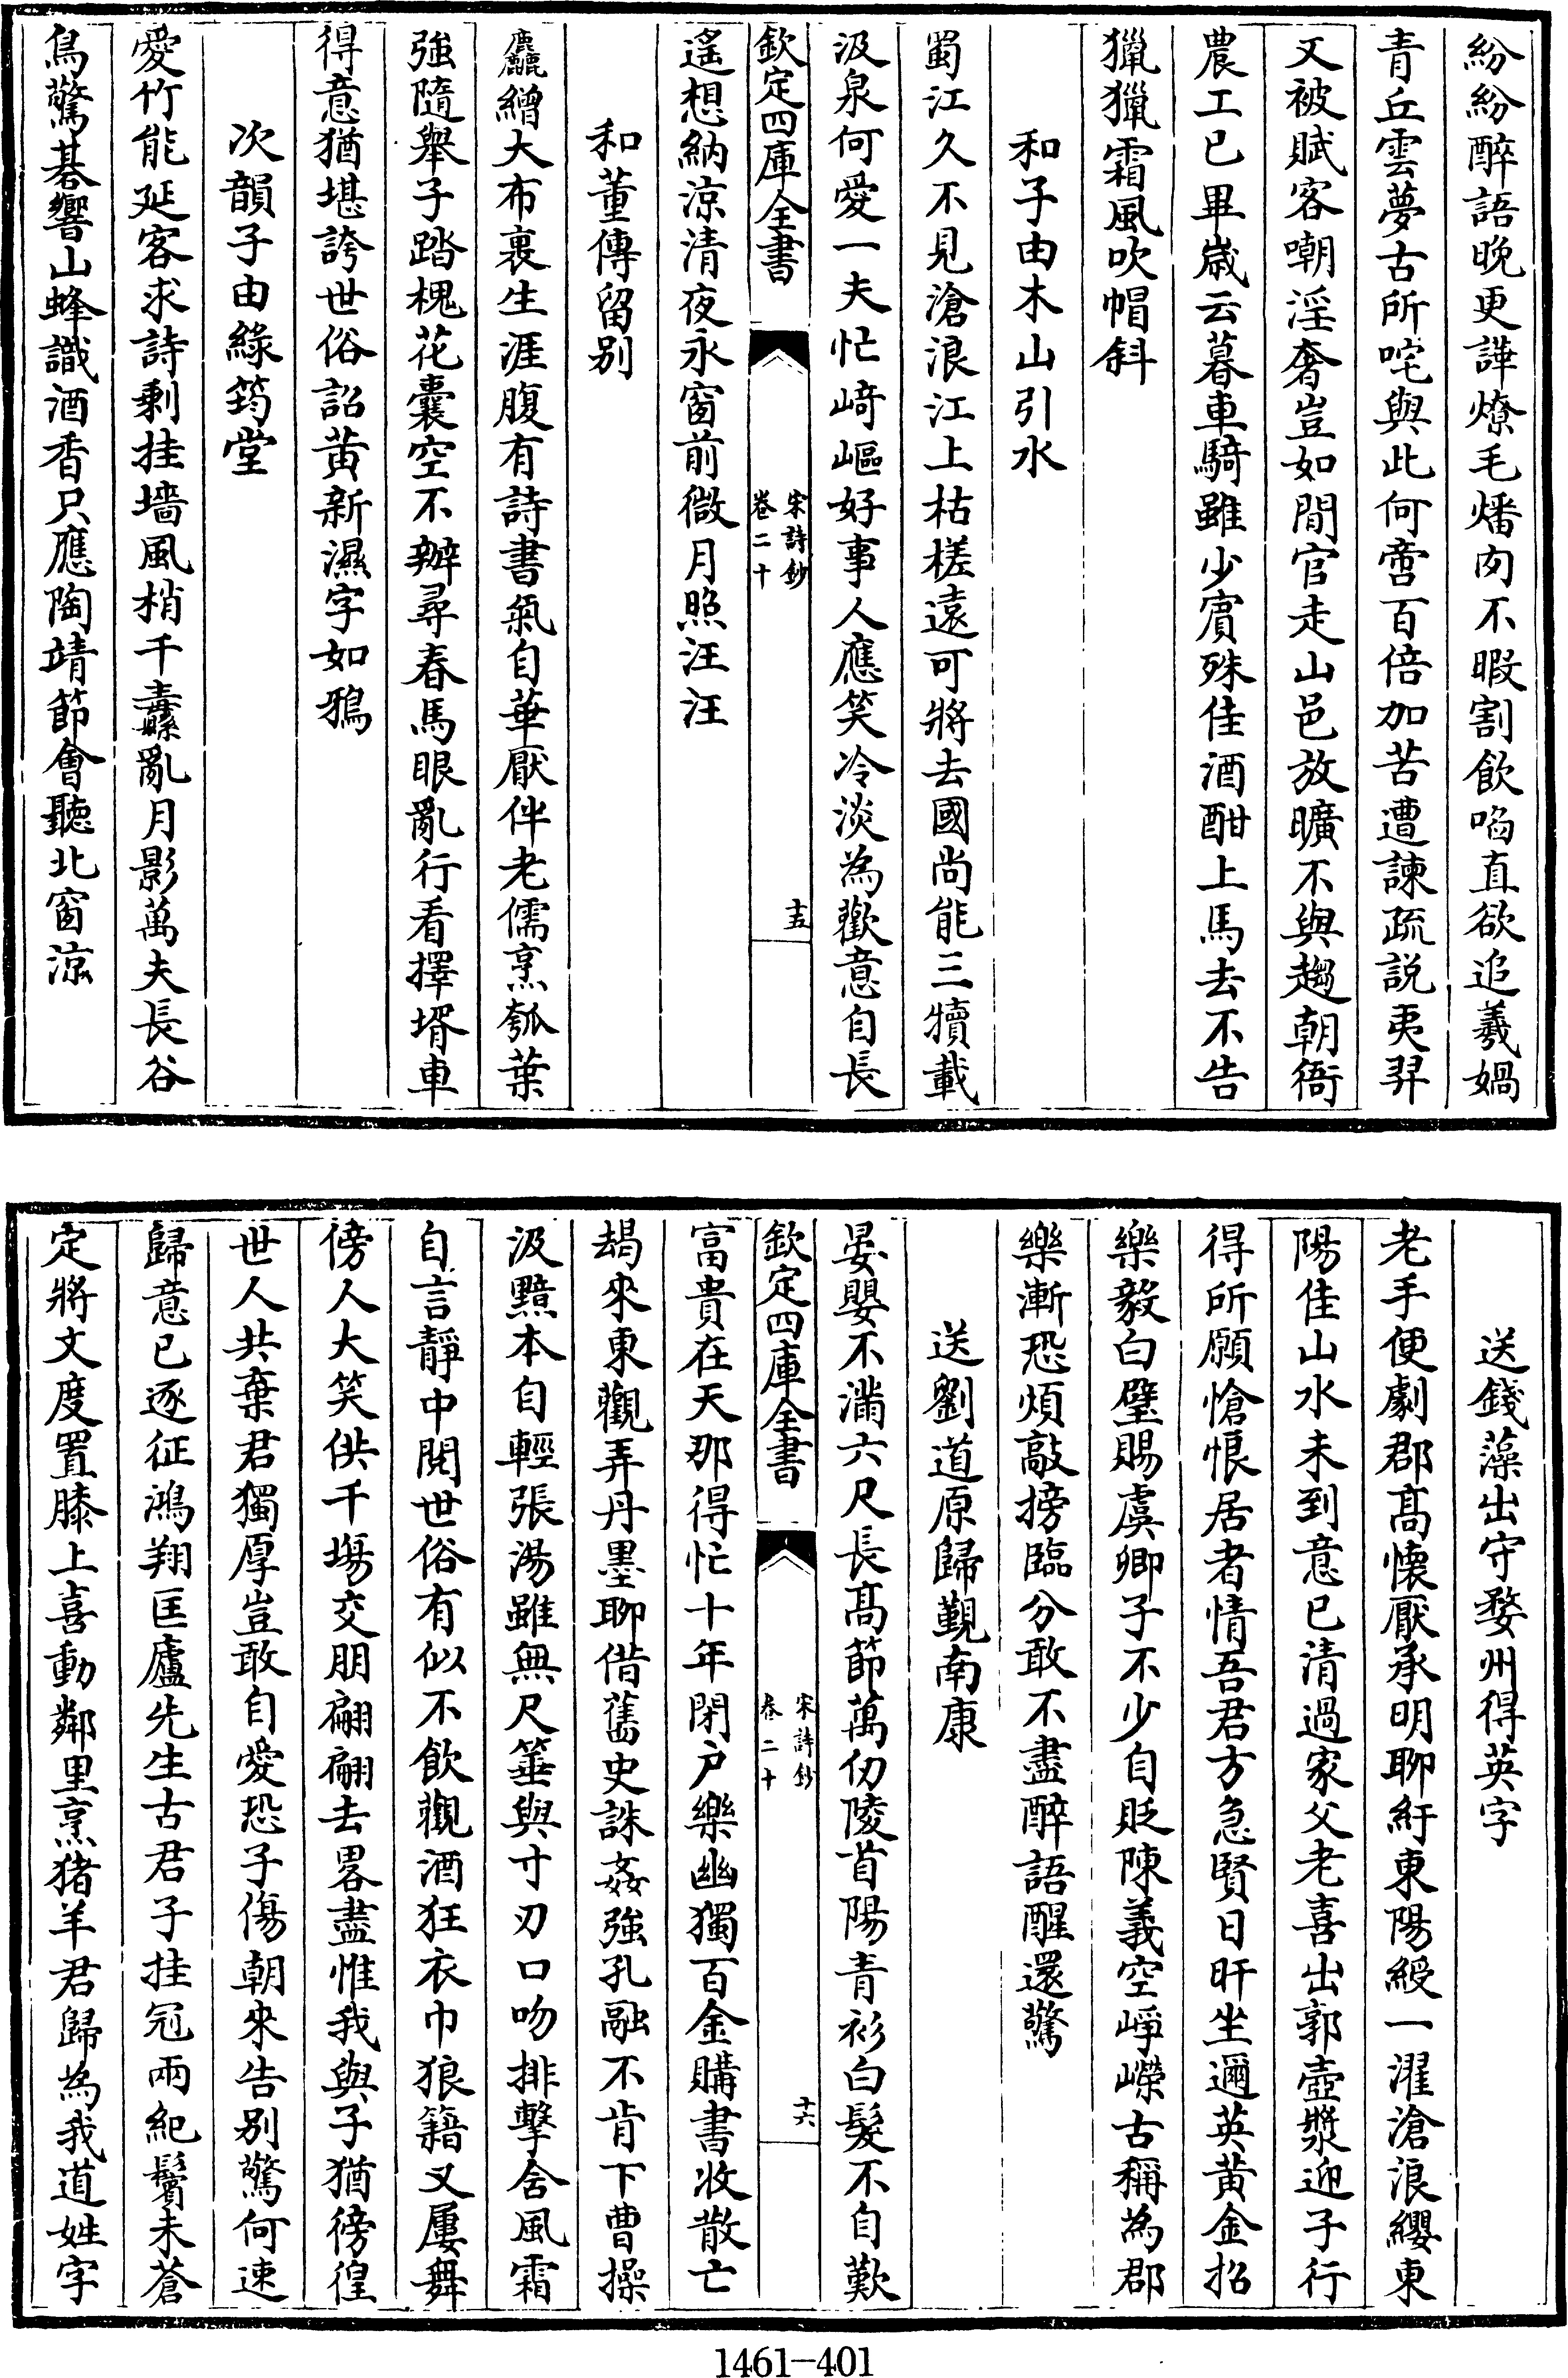 紛紛醉語晚更譁燎毛燔肉不暇割飲啗直欲追羲媧
青丘雲夢古所咤與此何啻百倍加苦遭諫疏説夷羿
又被賦客嘲淫奢豈如閒官走山邑放曠不與趨朝衙
農工已畢嵗云暮車騎雖少賔殊佳酒酣上馬去不告
獵獵霜風吹帽斜
和子由木山引水
蜀江久不見滄浪江上枯槎遠可將去國尚能三犢載
汲泉何愛一夫忙﨑嶇好事人應笑冷淡為歡意自長
欽定四庫全書
宋詩鈔
卷二十
十五
遙想納涼清夜永窗前微月照汪汪
和董傳留别
麤繒大布裹生涯腹有詩書氣自華厭伴老儒烹瓠葉
強隨舉子踏槐花囊空不辦尋春馬眼亂行看擇壻車
得意猶堪誇世俗詔黃新濕字如鴉
次韻子由綠筠堂
愛竹能延客求詩剰挂墻風梢千纛亂月影萬夫長谷
鳥驚棊響山蜂識酒香只應陶靖節會聽北窗涼
送錢藻出守婺州得英字
老手便劇郡髙懷厭承明聊紆東陽綬一濯滄浪纓東
陽佳山水未到意已清過家父老喜出郭壺漿迎子行
得所願愴恨居者情吾君方急賢日旰坐邇英黃金招
樂毅白璧賜虞卿子不少自貶陳義空崢嶸古稱為郡
樂漸恐煩敲搒臨分敢不盡醉語醒還驚
送劉道原歸覲南康
晏嬰不滿六尺長髙節萬仞陵首陽青衫白髮不自歎
富貴在天那得忙十年閉户樂幽獨百金購書收散亡
欽定四庫全書
宋詩鈔
卷二十
十六
朅來東觀弄丹墨聊借舊史誅姦強孔融不肯下曹操
汲黯本自輕張湯雖無尺箠與寸刃口吻排擊含風霜
自言靜中閱世俗有似不飲觀酒狂衣巾狼籍又屢舞
傍人大笑供千塲交朋翩翩去畧盡惟我與子猶徬徨
世人共棄君獨厚豈敢自愛恐子傷朝來告别驚何速
歸意已逐征鴻翔匡廬先生古君子挂冠兩紀鬢未蒼
定將文度置膝上喜動鄰里烹猪羊君歸為我道姓字
1461-401